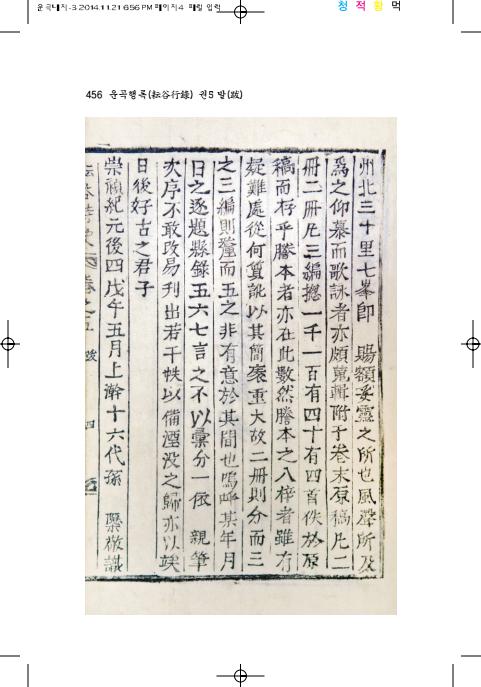 운곡내지-3 2014.11.21 6:56 PM 페이지4
청 적 황 먹
456 운곡행록(耘谷行錄) 권5 발(跋)
州北三十里七峯卽 賜額妥靈之所也風聲所及
爲之仰慕而歌詠者亦頗蒐輯附于卷末原稿凡二
冊二冊凡三編摠一千一百有四十有四首佚於原
稿而存乎謄本者亦在此數然謄本之入梓者雖有
疑難處從何質訛以其簡袠重大故二冊則分而三
之三編則釐而五之非有意於其間也嗚呼某年月
日之逐題縣錄五六七言之不以彙分一依 親筆
次序不敢改易刊出若干帙以備湮沒之歸亦以竢
日後好古之君子
崇禎紀元後四戊午五月上澣十六代孫 敬識
耘谷詩史 卷之五 跋 四